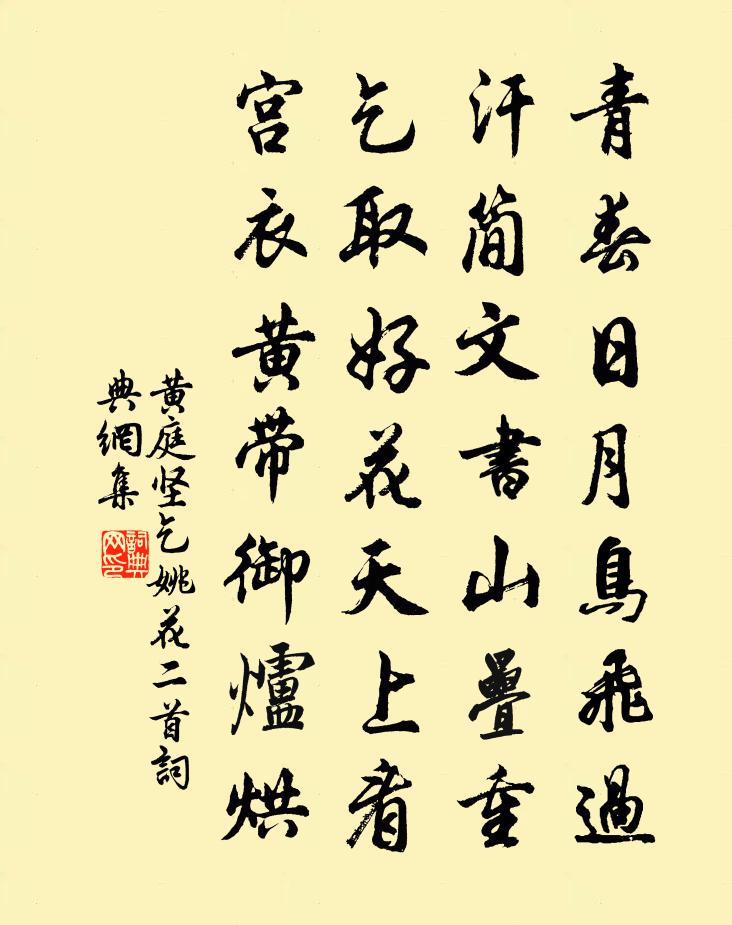 青春日月鳥飛過
汗简文書山疊重
乞取好花天上看
宫衣黄带御爐烘
黄庭坚乞姚花二首詞
典網集
詞典網印